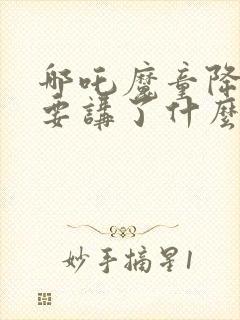 哪吒魔童降
要講了什麼
妙手摘星1